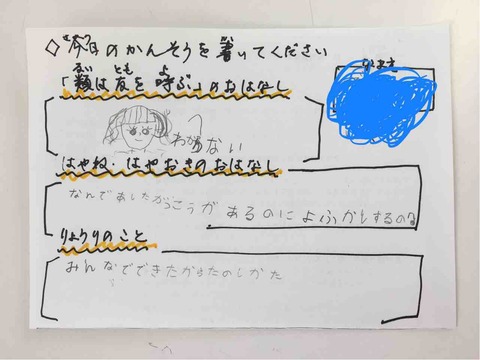 ◇今日のかんそうを書いてください
なまえ
「類は友を呼ぶ」のおはなし
るい とも よ
わからない
はやね・はやおきのおはなし
なんであしたがっこうが あるのに よふかしするの?
りょうりのこと
みんなでできたからたのしかた